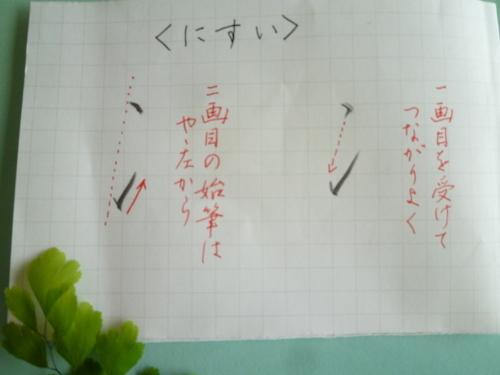 <にすい>
一画目を受けて
つながりよく
二画目の始筆は
やゝ左から